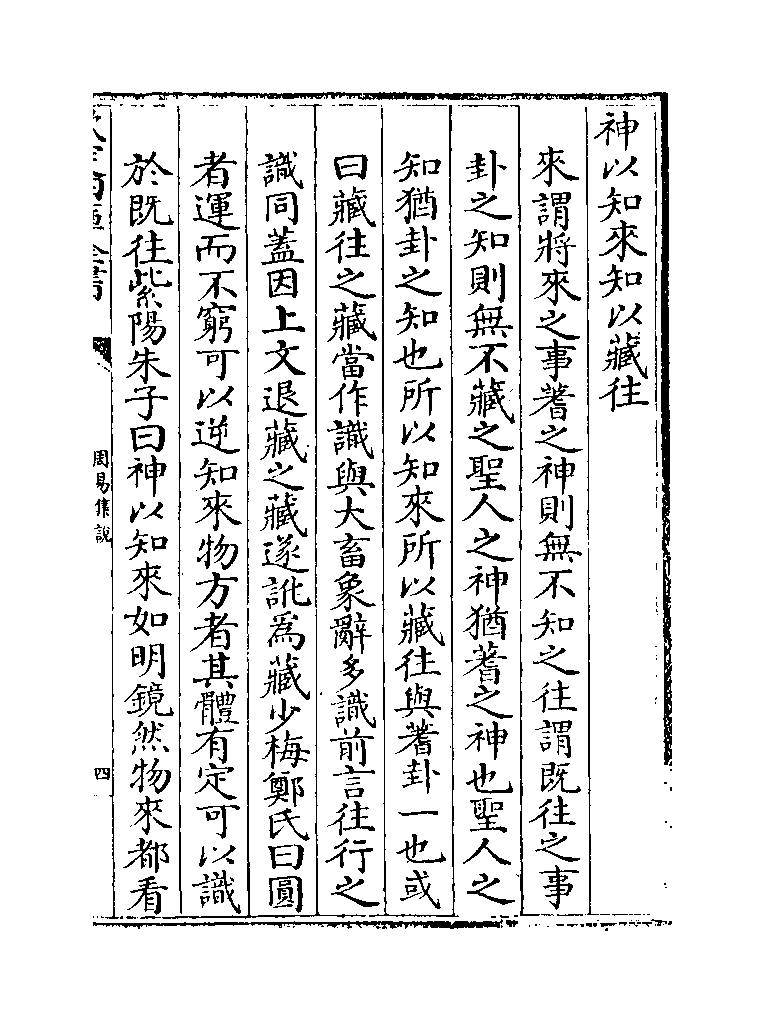 神以知來知以藏往
來謂將來之事蓍之神則無不知之往謂既往之事
卦之知則無不藏之聖人之神猶蓍之神也聖人之
知猶卦之知也所以知來所以藏往與蓍卦一也或
曰藏往之藏當作識與大畜象辭多識前言往行之
識同蓋因上文退藏之藏遂訛爲藏少梅鄭氏曰圓
者運而不窮可以逆知來物方者其體有定可以識
於既往紫陽朱子曰神以知來如明鏡然物來都看
周易集說
四